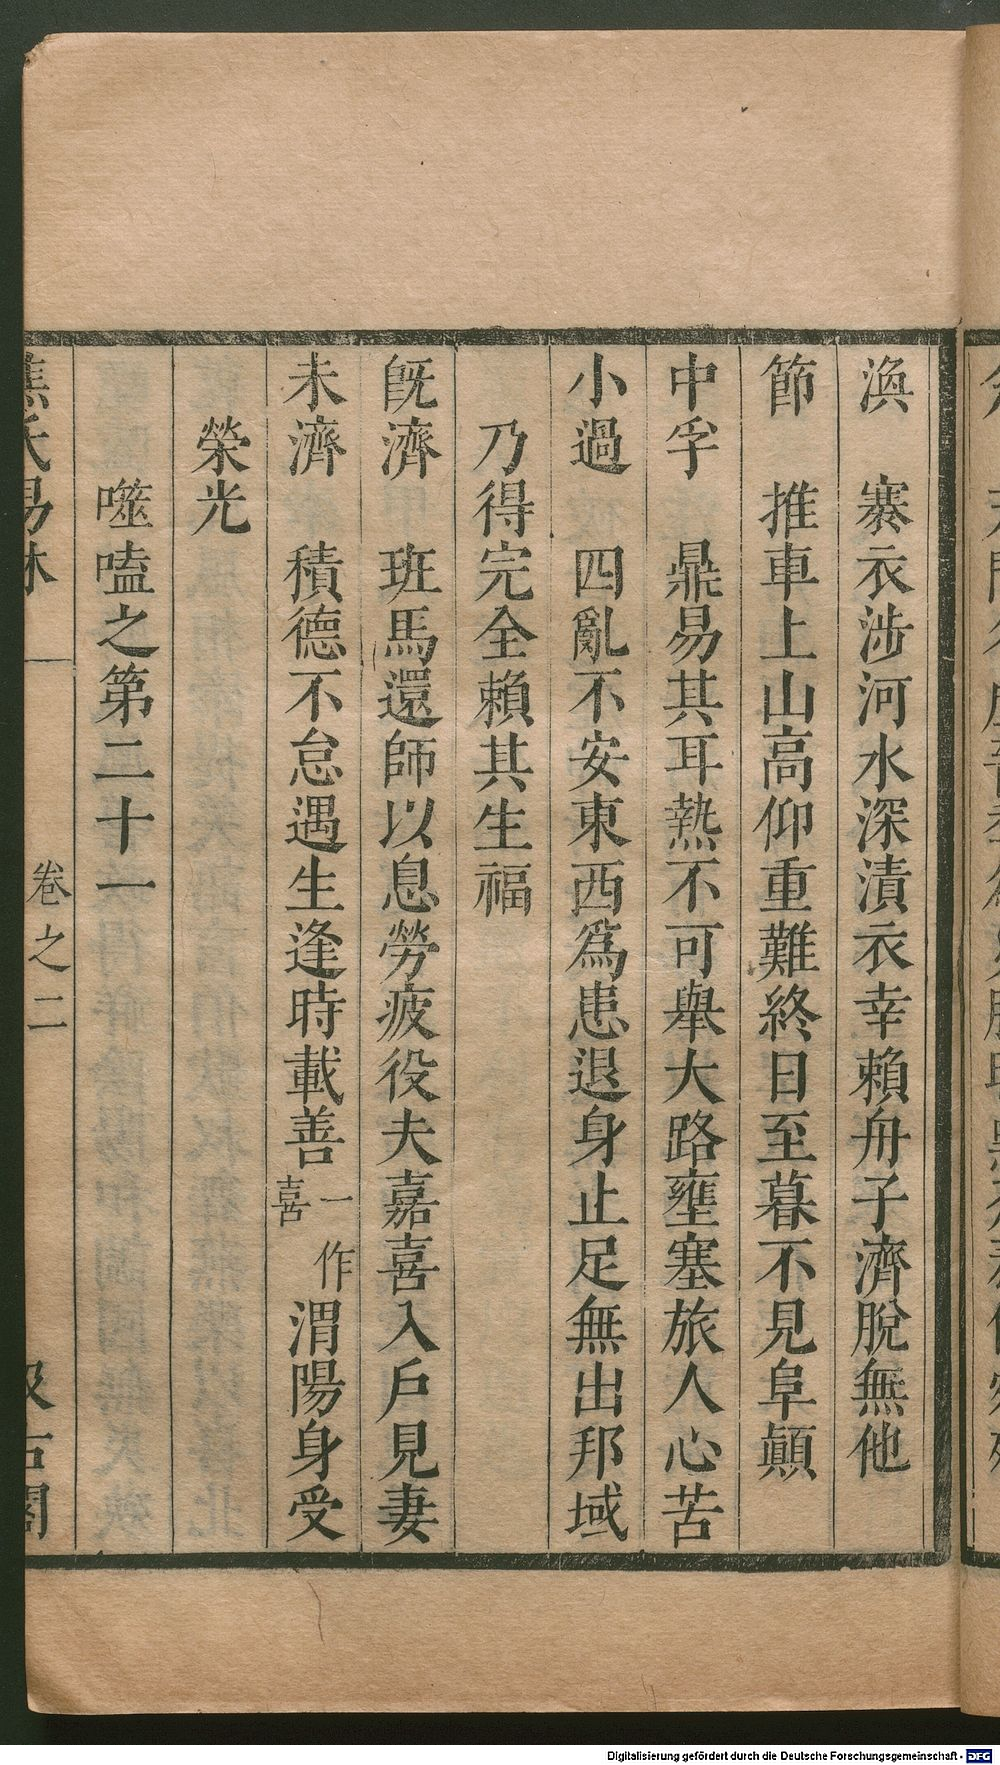 渙 褰衣涉河水深漬衣幸賴舟子濟脫無他
節 推車上山高仰重難終日至暮不見阜顛
中孚 鼎易其耳熱不可舉大路壅塞旅人心苦
小過 四亂不安東西爲患退身止足無出邦域
乃得完全賴其生福
旣濟 班馬還師以息勞疲役夫嘉喜入戶見妻
未濟 積德不怠遇生逢時載善一作喜渭陽身受
榮光
噬嗑之第二十一
焦氏易林 卷之二 汲古閣
Digitalisierung gefördert durch die Deutsche Forschungsgemeinschaft - DFG